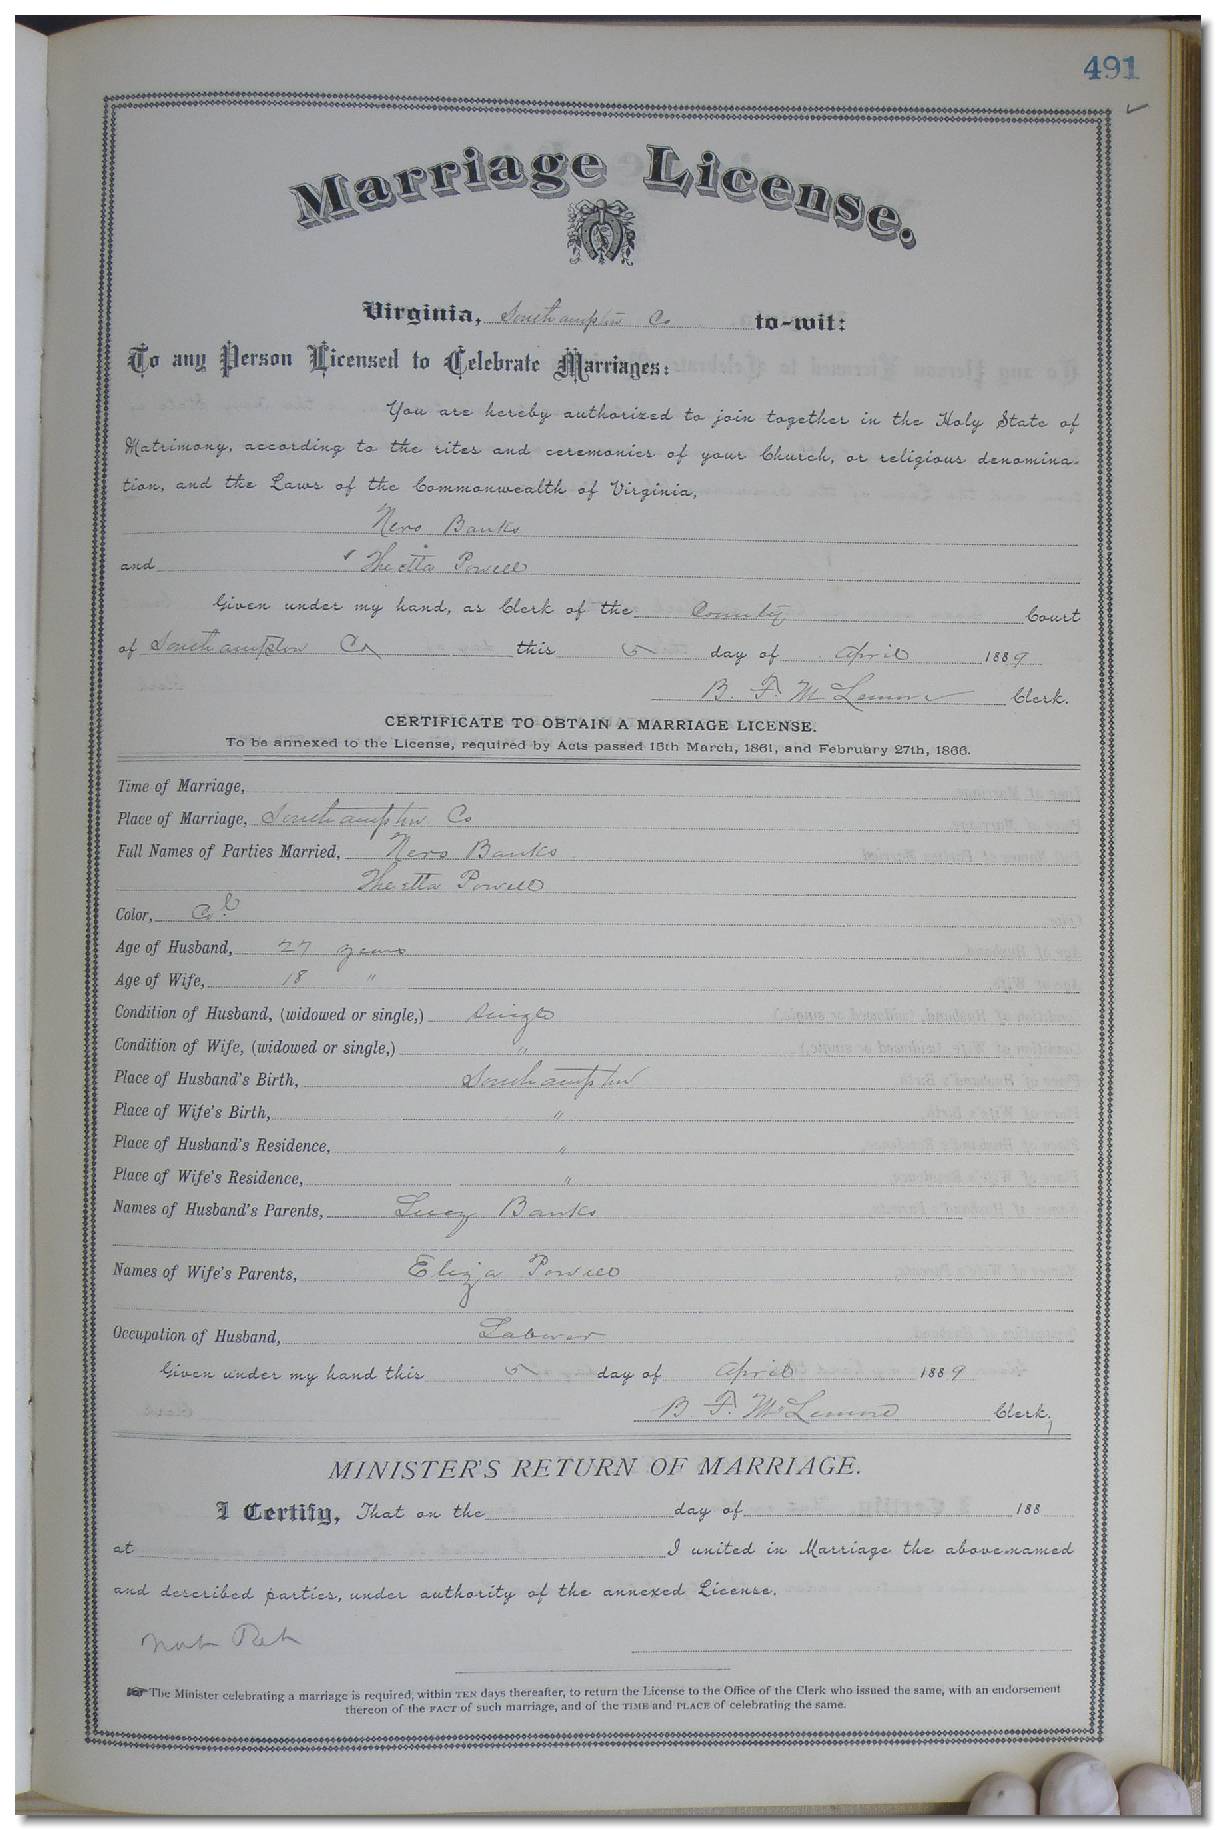 491
Marriage License.
Virginia, Southampton Co to-wit:
To any Person Licensed to Celebrate Marriages:
You are hereby authorized to join together in the Holy State of
Matrimony, according to the rites and ceremonies of your Church, or religious denomina-
tion, and the Laws of the Commonwealth of Virginia,
Nero Banks
and Theetta Powell
Given under my hand, as Clerk of the County Court
of Southampton Co this 5 day of April 1889
B. F. McLemore Clerk.
CERTIFICATE TO OBTAIN A MARRIAGE LICENSE.
To be annexed to the License, required by Acts passed 15th March, 1861, and February 27th, 1866.
Time of Marriage,
Place of Marriage, Southampton Co
Full Names of Parties Married, Nero Banks
Theetta Powell
Color, Col
Age of Husband, 27 years
Age of Wife, 18 "
Condition of Husband, (widowed or single,) Single
Condition of Wife, (widowed or single,) "
Place of Husband's Birth, Southampton
Place of Wife's Birth, "
Place of Husband's Residence, "
Place of Wife's Residence, "
Names of Husband's Parents, Lucy Banks
Names of Wife's Parents, Eliza Powell
Occupation of Husband, Laborer
Given under my hand this 5 day of April 1889
B F. McLemore Clerk.
MINISTER'S RETURN OF MARRIAGE.
I Certify, That on the day of 188
at I united in Marriage the above-named
and described parties, under authority of the annexed License.
The Minister celebrating a marriage is required, within TEN days thereafter, to return the License to the Office of the Clerk who issued the same, with an endorsement
thereon of the FACT of such marriage, and of the TIME and PLACE of celebrating the same.